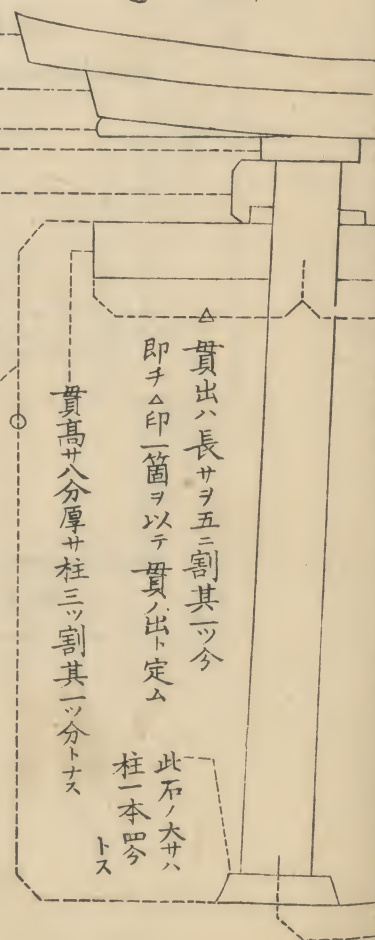 △貫出ハ長サヲ五ニ割其一ツ分
即チ△印一箇ヲ以テ貫ノ出ト定ム
貫高サ八分厚サ柱三ツ割其一ツ分トナス
此石ノ大サハ
柱一本四分
トス